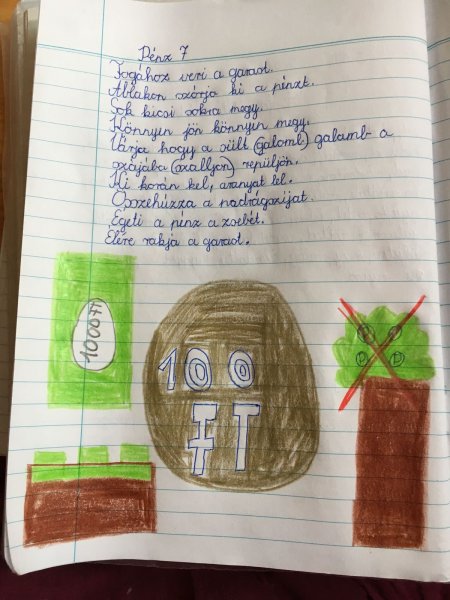 Pénz 7
Fogához veri a garast.
Ablakon szórja ki a pénzt.
Sok kicsi sokra megy.
Könnyen jön könnyen megy.
Várja hogy a sült (galamb) galamb a
szájába (szálljon) repüljön.
Ki korán kel, aranyat lel.
Összehúzza a nadrágszíjat.
Égeti a pénz a zsebét.
Élére rakja a garast.
1000 Ft
100
FT